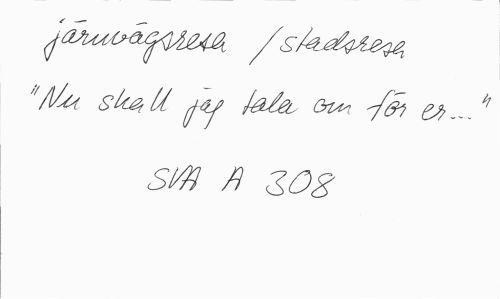 järnvägsresa /stadsresa
"Nu skall jag tala om för er..."
SVA A 308